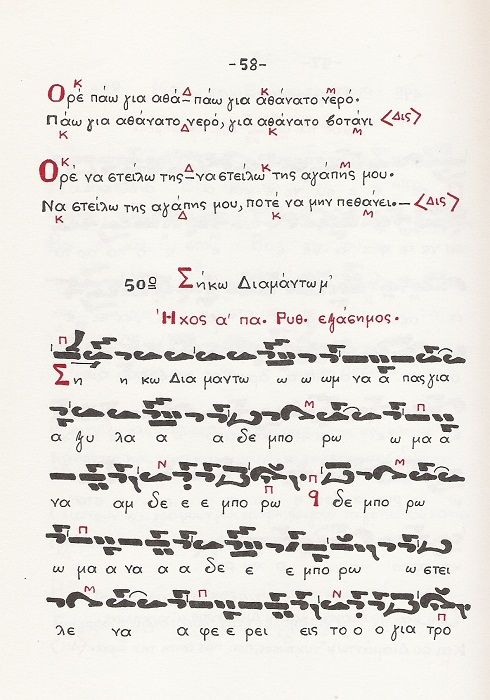 -58-
Ορέ πάω για αθά-πάω για αθάνατο νερό.
Πάω για αθάνατο νερό, για αθάνατο βοτάνι <Δις>
Ορέ να στείλω της-να στείλω της αγάπης μου.
Να στείλω της αγάπης μου, ποτέ να μην πεθάνει.- <Δις>
50ο Σήκω Διαμάντωμ'
Ήχος α' πα. Ρυθ. εφάσημος.
Ση η κω Δια μαντω ω ω ωμ να α πας για
α ψυ λα α α δε μπο ρω ω μα α
να αμ δε ε ε μπο ρω δε μπο ρω
ω μα α να α α δε ε ε μπο ρω ω στει
λε να α φε ε ρει εις το ο ο για τρο